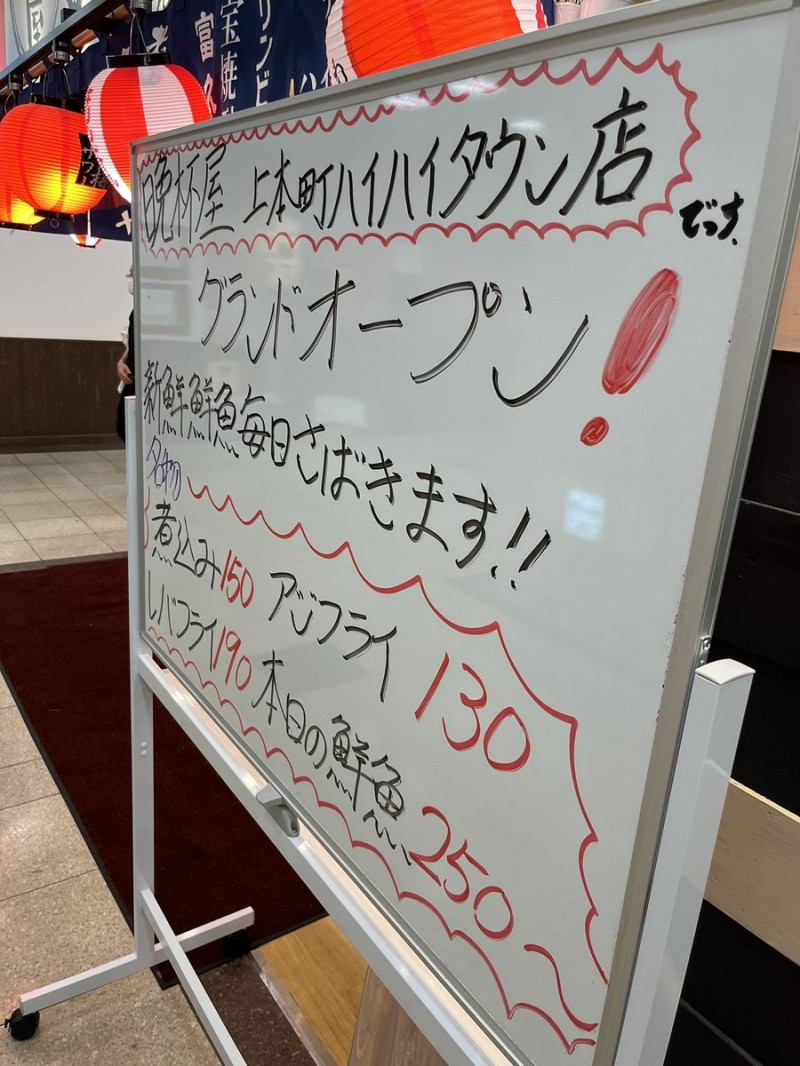 晩杯屋 上本町ハイハイタウン店
でっす.
グランドオープン!
新鮮鮮魚毎日さばきます!!
名物
煮込み150 アジフライ 130
レバフライ190 本日の鮮魚 250